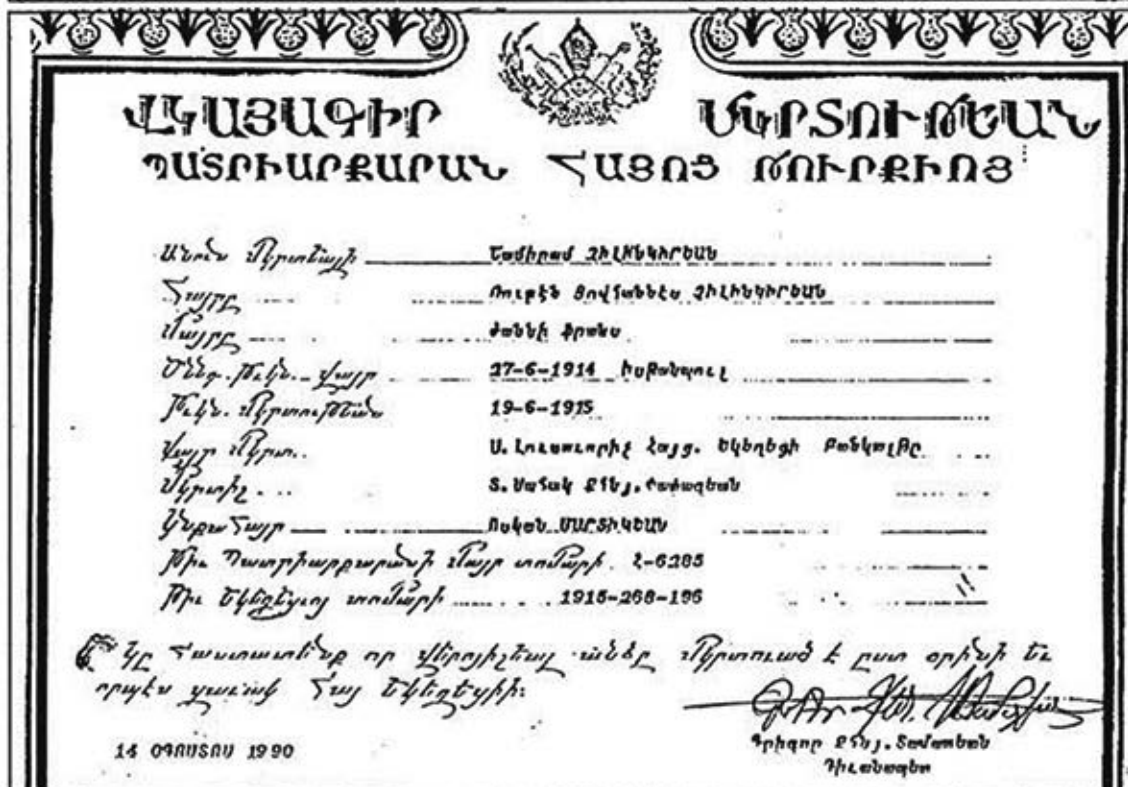 ՎԿԱՅԱԳԻՐ ՄԿՐՏՈՒԹԵԱՆ
ՊԱՏՐԻԱՐՔԱՐԱՆ ՀԱՅՈՑ ԹՈՒՐՔԻՈՅ
Անուն Մկրտելոյի Շամիրամ ՉԻԼԻՆԿԻՐԵԱՆ
Հայրը Ռուբէն Յովհաննէս ՉԻԼԻՆԿԻՐԵԱՆ
Մայրը Ժաննի Քրանս
Ծննդ. Թւկն. Վայր 27-6-1914 Իսթանպուլ
Թւկն. Մկրտութեան 19-6-1915
Վայր Մկրտ. Ս. Լուսաւորիչ Հայց. Եկեղեցի Բանկալթը
Մկրտիչ Տ. Սահակ Քհնյ.
Կնքահայր Ոսկան ՄԱՐՏԻԿԵԱՆ
Թիւ Պատրիարքարանի Մայր տոմարի 2-6285
Թիւ Եկեղեցւոյ տոմարի 1915-268-196
Կը հաստատենք որ վերոյիշեալ անձը մկրտուած է ըստ օրինի եւ
որպէս զաւակ Հայ Եկեղեցիի:
14 ՕԳՈՍՏՈՍ 1990
Գրիգոր Քհնյ. Տամատեան
Դիւանապետ